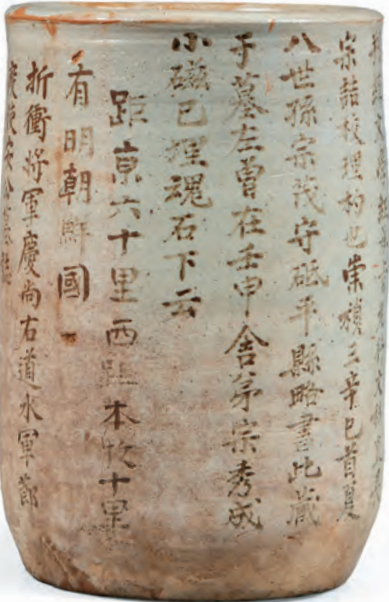 宗詰校理杓也崇禎三辛巳首夏
八世孫宗茂守砥平縣略書此藏
于墓左曾在壬申舍弟宗秀成
小磁已埋魂石下云
距京六十里西距本牧十里
有明朝鮮國
折衝將軍慶尚右道水軍節